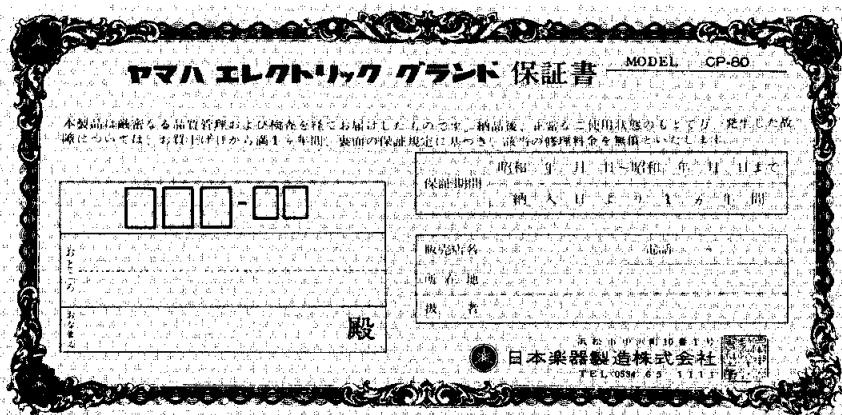 ヤマハ エレクトリック グランド 保証書 MODEL CP-80
本製品は厳密なる品質管理および検査を経てお届けしたものです。納品後、正常なご使用状態のもとで万一発生した故
障については、お買上げ日から満1ヶ年間、裏面の保証規定に基づき、該当の修理料金を無償といたします。
保証期間 昭和 年 月 日〜昭和 年 月 日まで
納入日より1か年間
-
おところ
おなまえ 殿
販売店名 電話
所在地
扱者
浜松市中沢町10番1号
日本楽器製造株式会社
TEL 0534 65 1111